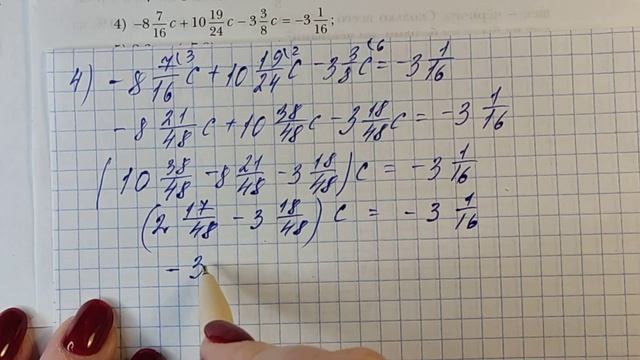 4) −8 7/16 c + 10 19/24 c − 3 3/8 c = −3 1/16;
4) −8 7/16 (3 c + 10 19/24 (2 c − 3 3/8 c (6 = −3 1/16
−8 21/48 c + 10 38/48 c − 3 18/48 c = −3 1/16
(10 38/48 − 8 21/48 − 3 18/48) c = −3 1/16
(2 17/48 − 3 18/48) c = −3 1/16
− 3